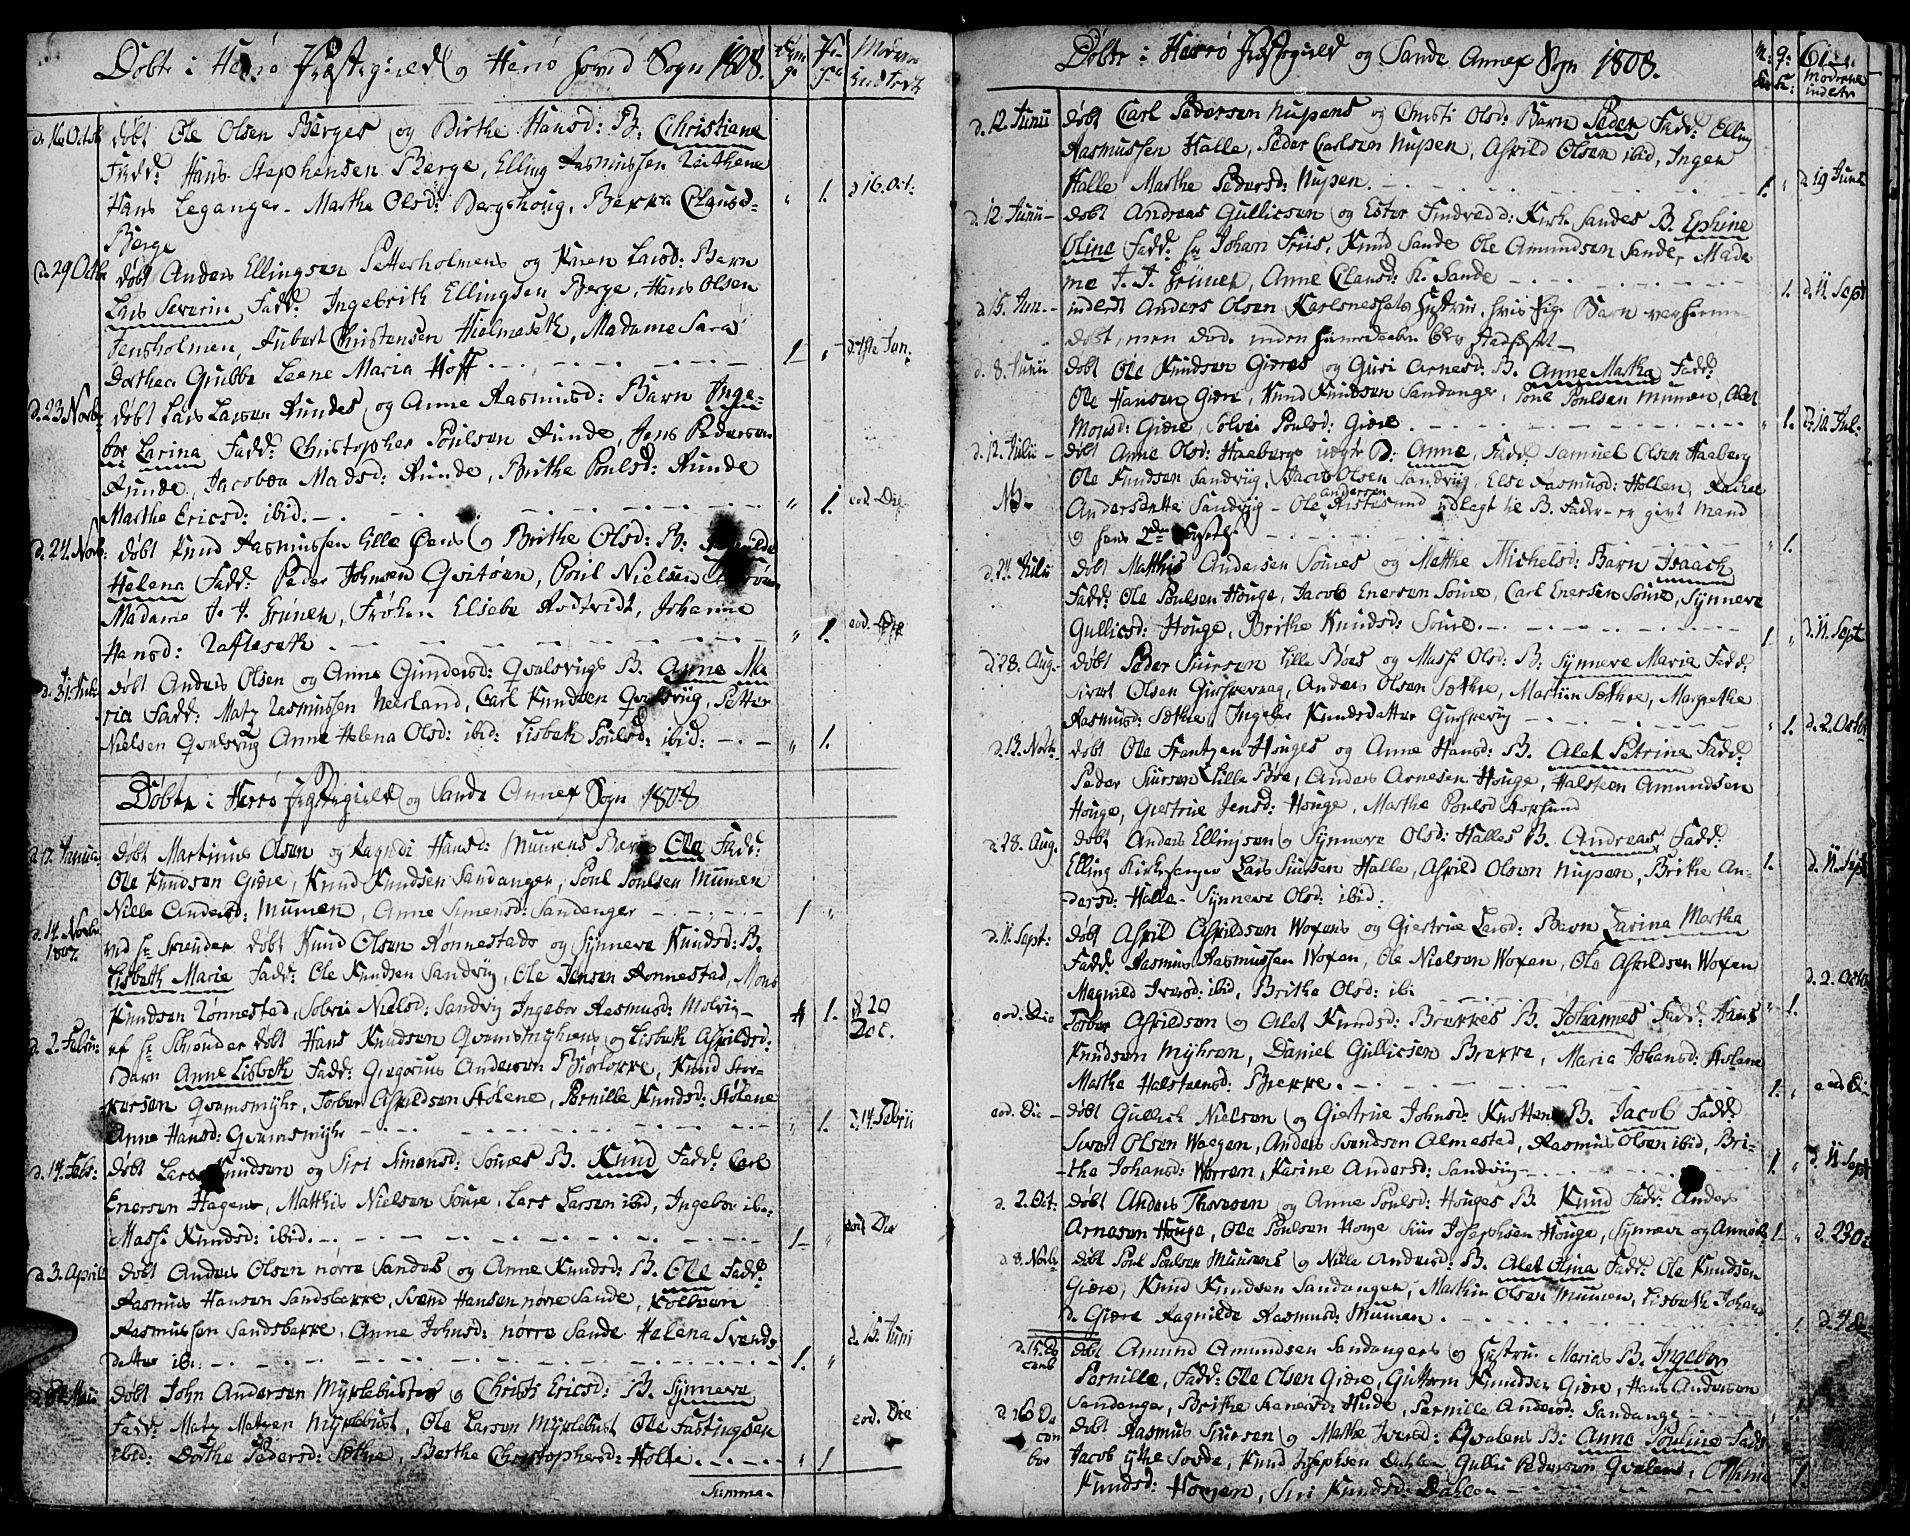 Døbte i Herrø Præstegield og Herrø Hoved Sogn 1808.
d. 16 Octob døbt Ole Olsen Berges og Birthe Hansd: B: Christiane
Fadd: Hans Stephensen Berge, Elling Rasmussen
Hans Leganger - Marthe Olsd: Bergshoug, Clausd- " 1. d 16. Oct:
Berge
d. 29 Octbr døbt Anders Ellingsen Petterholmens og Karen Larsd: Barn
Lars Severin Fadd: Ingebrith Ellingsen Berge, Hans Olsen
Jensholmen, Hubert Christensen Hielmeseth, Madame Sara
Dorthea Grubbe Leene Maria Hoff 1 "
d. 23 Novb: døbt Lars Larsen Rundes, og Anne Rasmusd: Barn Inge-
bor Larina Fadd: Christopher Poulsen Runde, Jens Pedersen
Runde, Jacobea Madsd: Runde, Brithe Poulsd: Runde
Marthe Ericsd: ibid. " 1. eod. Die
d. 24. Novb: døbt Knud Rasmussen Lille Øens og Brithe Olsd: B:
Helena Fadd: Peder Johnsen Qvitøen, Poul Nielsen
Madame J. J. Grünen, Frøken Elsebe Rodtvidt, Johanne
Hansd: Rafteseth " 1. eod. Die
d. 31 døbt Anders Olsen og Anne Gundersd: Qvalsvigs B. Anne Ma
ria Fadd: Matz Rasmussen Neerland, Carl Knudsen Qvalsviig, Petter
Nielsen Qvalsvig Anne Helena Olsd: ibid: Lisbeth Poulsd: ibid: " 1.
Døbte i Herrø Præstegield og Sande Annex Sogn 1808
d. 17. Janua: døbt Martinus Olsen og Ragndi Hansd: Muurens Barn Ole Fadd:
Ole Knudsen Giøre, Knud Knudsen Sandanger, Poul Poulsen Mumen
Nille Andersd: Mumen, Anne Simensd: Sandanger 1 "
d. 14 Novbr 1807. ved Hr Strender døbt Knud Olsen Rønnestads og Synneve Knudsd: B.
Lisbeth Marie Fadd: Ole Knudsen Sandvig, Ole Jensen Rønnestad, Mons
Knudsen Rønnestad, Solvei Nielsd: Sandvig Ingebor Rasmusd: Molvig 1. d 20 Dec:
d. 2. Febru: af Hr Strender døbt Hans Knudsen Qvamsmyhrens og Lisbeth Askildsd:
Barn Anne Lisbeth Fadd: Gregorius Andersen Biørlokke, Knud Stor-
kersen Qvamsmyhr, Torber Askildsen Hølene, Pernille Knudsd: Hølene
Anne Hansd: Qvamsmyhr " 1. d 14. Febrii
d. 14. Feb: døbt Lars Knudsen og Siri Simensd: Soures B. Knud Fadd: Carl
Enersen Hagens, Matthis Nielsen Soure, Lars Larsen ibid, Ingebor ib:
Massi Knudsd: ibid. 1 " eod Die
d. 3. April døbt Anders Olsen nørre Sandes og Anne Knudsd: B. Ole Fadd:
Rasmus Hansen Sandsbakke, Svend Hansen nørre Sande, Kolbeen
Rasmussen Sandsbakke, Anne Johnsd: nørre Sande Helena Svends
datter ib: 1. " d. 15. Juni
d. 8 Maii døbt John Andersen Myklebustes og Christi Ericsd: B. Synneve
Fadd: Matz Matzen Myklebust, Ole Larsen Myklebust Ole Fastingsen
ibid: Dorthe Pedersd: Sæthre, Berthe Christophersd: Holte " 1 eod. Die
Summa.
Døbte i Herrø Præstegield og Sande Annex Sogn 1808.
d. 12. Junii døbt Carl Pedersen Nupens og Christi Olsd: Barn Peder Fadd: Elling
Rasmussen Halle, Peder Carlsen Nupen, Askild Olsen ibid, Inger
Halle Marthe Pedersd: Nupen. 1. " d 19 Junii
d. 12. Junii - døbt Andreas Gullicsen og Ester Findredd: Kirk Sandes B. Ephine
Oline Fadd: Hr Johan Friis, Knud Sande Ole Amundsen Sande, Mada
me J. J. Grünen, Anne Clausd: K. Sande 1. d. 11. Sept
d 15. Jun. - inledt Anders Olsen Karlsnessets Hustrue, hvis Pige Barn var hiemme
døbt, men død inden hiemmedaaben blev stadfæst -
d. 8. Junii døbt Ole Knudsen Giøres og Guri Arnesd: B. Anne Martha Fadd:
Ole Hansen Giøre, Knud Knudsen Sandanger, Poul Poulsen Mumen, Alet
Monsd: Giøre, Solvei Poulsd: Giøre. " 1. d. 10. Jul:
d. 12. Julii - døbt Anne Olsd: Haabergs uægte B: Anne, Fadd: Samuel Olsen Haaberg
Ole Knudsen Sandviig, Jacob Olsen Sandviig, Else Rasmusd: Hollen, Rachel
NB. Andersdatter Sandviig - Ole Andersen Ristesund udlagt til B. Fader - er givt Mand
og hans 2den Leyersmaal " 1.
d. 24. Julii døbt Matthis Andersen Soures og Marthe Michelsd: Barn Isaach
Fadd: Ole Poulsen Houge, Jacob Enersen Soure, Carl Enersen Soure, Synneve
Gullicsd: Houge, Brithe Knudsd: Soure. 1 " d. 11. Sept
d. 28. Aug. - døbt Peder Siursen Lille Bøes og Massi Olsd: B. Synneve Maria Fadd:
Sivert Olsen Gurskevaag, Anders Olsen Sæthre, Martin Sæthre, Margrethe
Rasmusd: Sæthre, Ingeber Knudsdatter Gurskevig " 1. d. 2. Octob
d. 13. Novb: døbt Ole Frantzen Houges og Anne Hansd: B. Alet Petrine Fadd:
Peder Siursen Lille Bøe, Anders Arnesen Houge, Halsteen Amundsen
Houge, Giertrue Jensd: Houge, Marthe Poulsd
d. 28. Aug. døbt Anders Ellingsen og Synneve Olsd: Halles B. Andreas Fadd:
Elling Kirkesanger Lars Siursen Halle, Askild Olsen Nupen, Brithe An- 1. d. 11. Sept
dersd: Halle - Synneve Olsd: ibid.
d. 11. Sept: døbt Askild Askildsen Voxens og Giertrue Larsd: Barn Larina Martha
Fadd: Rasmus Rasmussen Voxen, Ole Nielsen Voxen, Ole Askildsen Voxen
Magnild Iversd: ibid, Brithe Olsd: ib: " 1. d. 2. Octob
eod. Die Torber Askildsen og Alet Knudsd: Brekkes B. Johannes Fadd: Hans
Knudsen Myhren, Daniel Gullicsen Brekke, Maria Johansd: Hølene
Marthe Halsteensd: Brekke. 1. " eod Di
eod. Die - døbt Gullich Nielsen og Giertrue Johnsd: B. Jacob Fadd:
Sivert Olsen Waagen, Anders Svendsen Almestad, Rasmus Olsen ibid, Bri-
the Johansd: Worren, Karine Andersd: Sandvig - 1. " d. 11 Sept
d. 2. Oct: døbt Anders Thoresen og Anne Poulsd: Houges B. Knud Fadd: Anders
Arnesen Houge, Ole Poulsen Houge Siur Josephsen Houge, Synneve og Anne ib: 1. " d. 23 O
d. 8. Novb: døbt Poul Poulsen Mumens og Nille Andersd: B. Alet Olina Fadd: Ole Knudsen
Giøre, Knud Knudsen Sandanger, Marthin Olsen Mumen, Lisbeth Johans
d. Giøre Ragnilde Rasmusd: Mumen. " 1. d. 4 de
d. 15. De cemb døbt Amund Amundsen Sandangers og Hustrue Marias B. Ingebor
Pernille, Fadd: Ole Olsen Giøre, Guttorm Knudsen Giøre, Hans Andersen
Sandanger, Brithe Hude, Pernille Andersd: Sandange " 1
d. 26 De cem ber døbt Rasmus Siursen og Marthe Iversd: Qvalens B: Anne Pouline Fadd
Jacob ytre Sovde, Knud Josephsen Dahlen Gullic Pedersen Qvalens, Othine " 1.
Knudsd: Hougen, Siri Knudsd: Dahlen